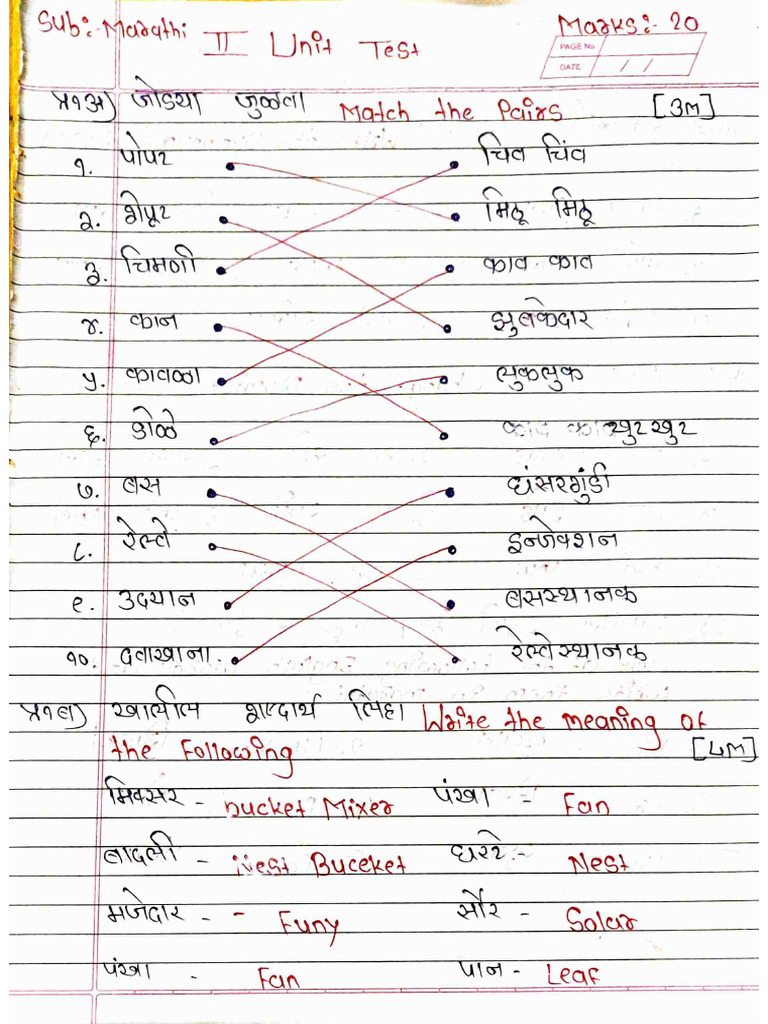 Sub:- Marathi II Unit Test Marks:- 20
PAGE No
DATE / /
प्र१अ) जोड्या जुळवा Match the Pairs [3M]
१. पोपट चिव चिंव
२. शेपूट मिठू मिठू
३. चिमणी काव काव
४. कान झुबकेदार
५. कावळा लुकलुक
६. डोळे खुटखुट
७. बस घंसरगुंडी
८. रेल्वे इन्जेक्शन
९. उदयान बसस्थानक
१०. दवाखाना. रेल्वेस्थानक
प्र१ब) खालील शब्दार्थ लिहा Write the meaning of
the Following [4M]
मिक्सर - bucket Mixer पंखा - Fan
बादली - Nest Buceket घरटे - Nest
मजेदार - - Funy सौर - Solar
पंखा - Fan पान - Leaf